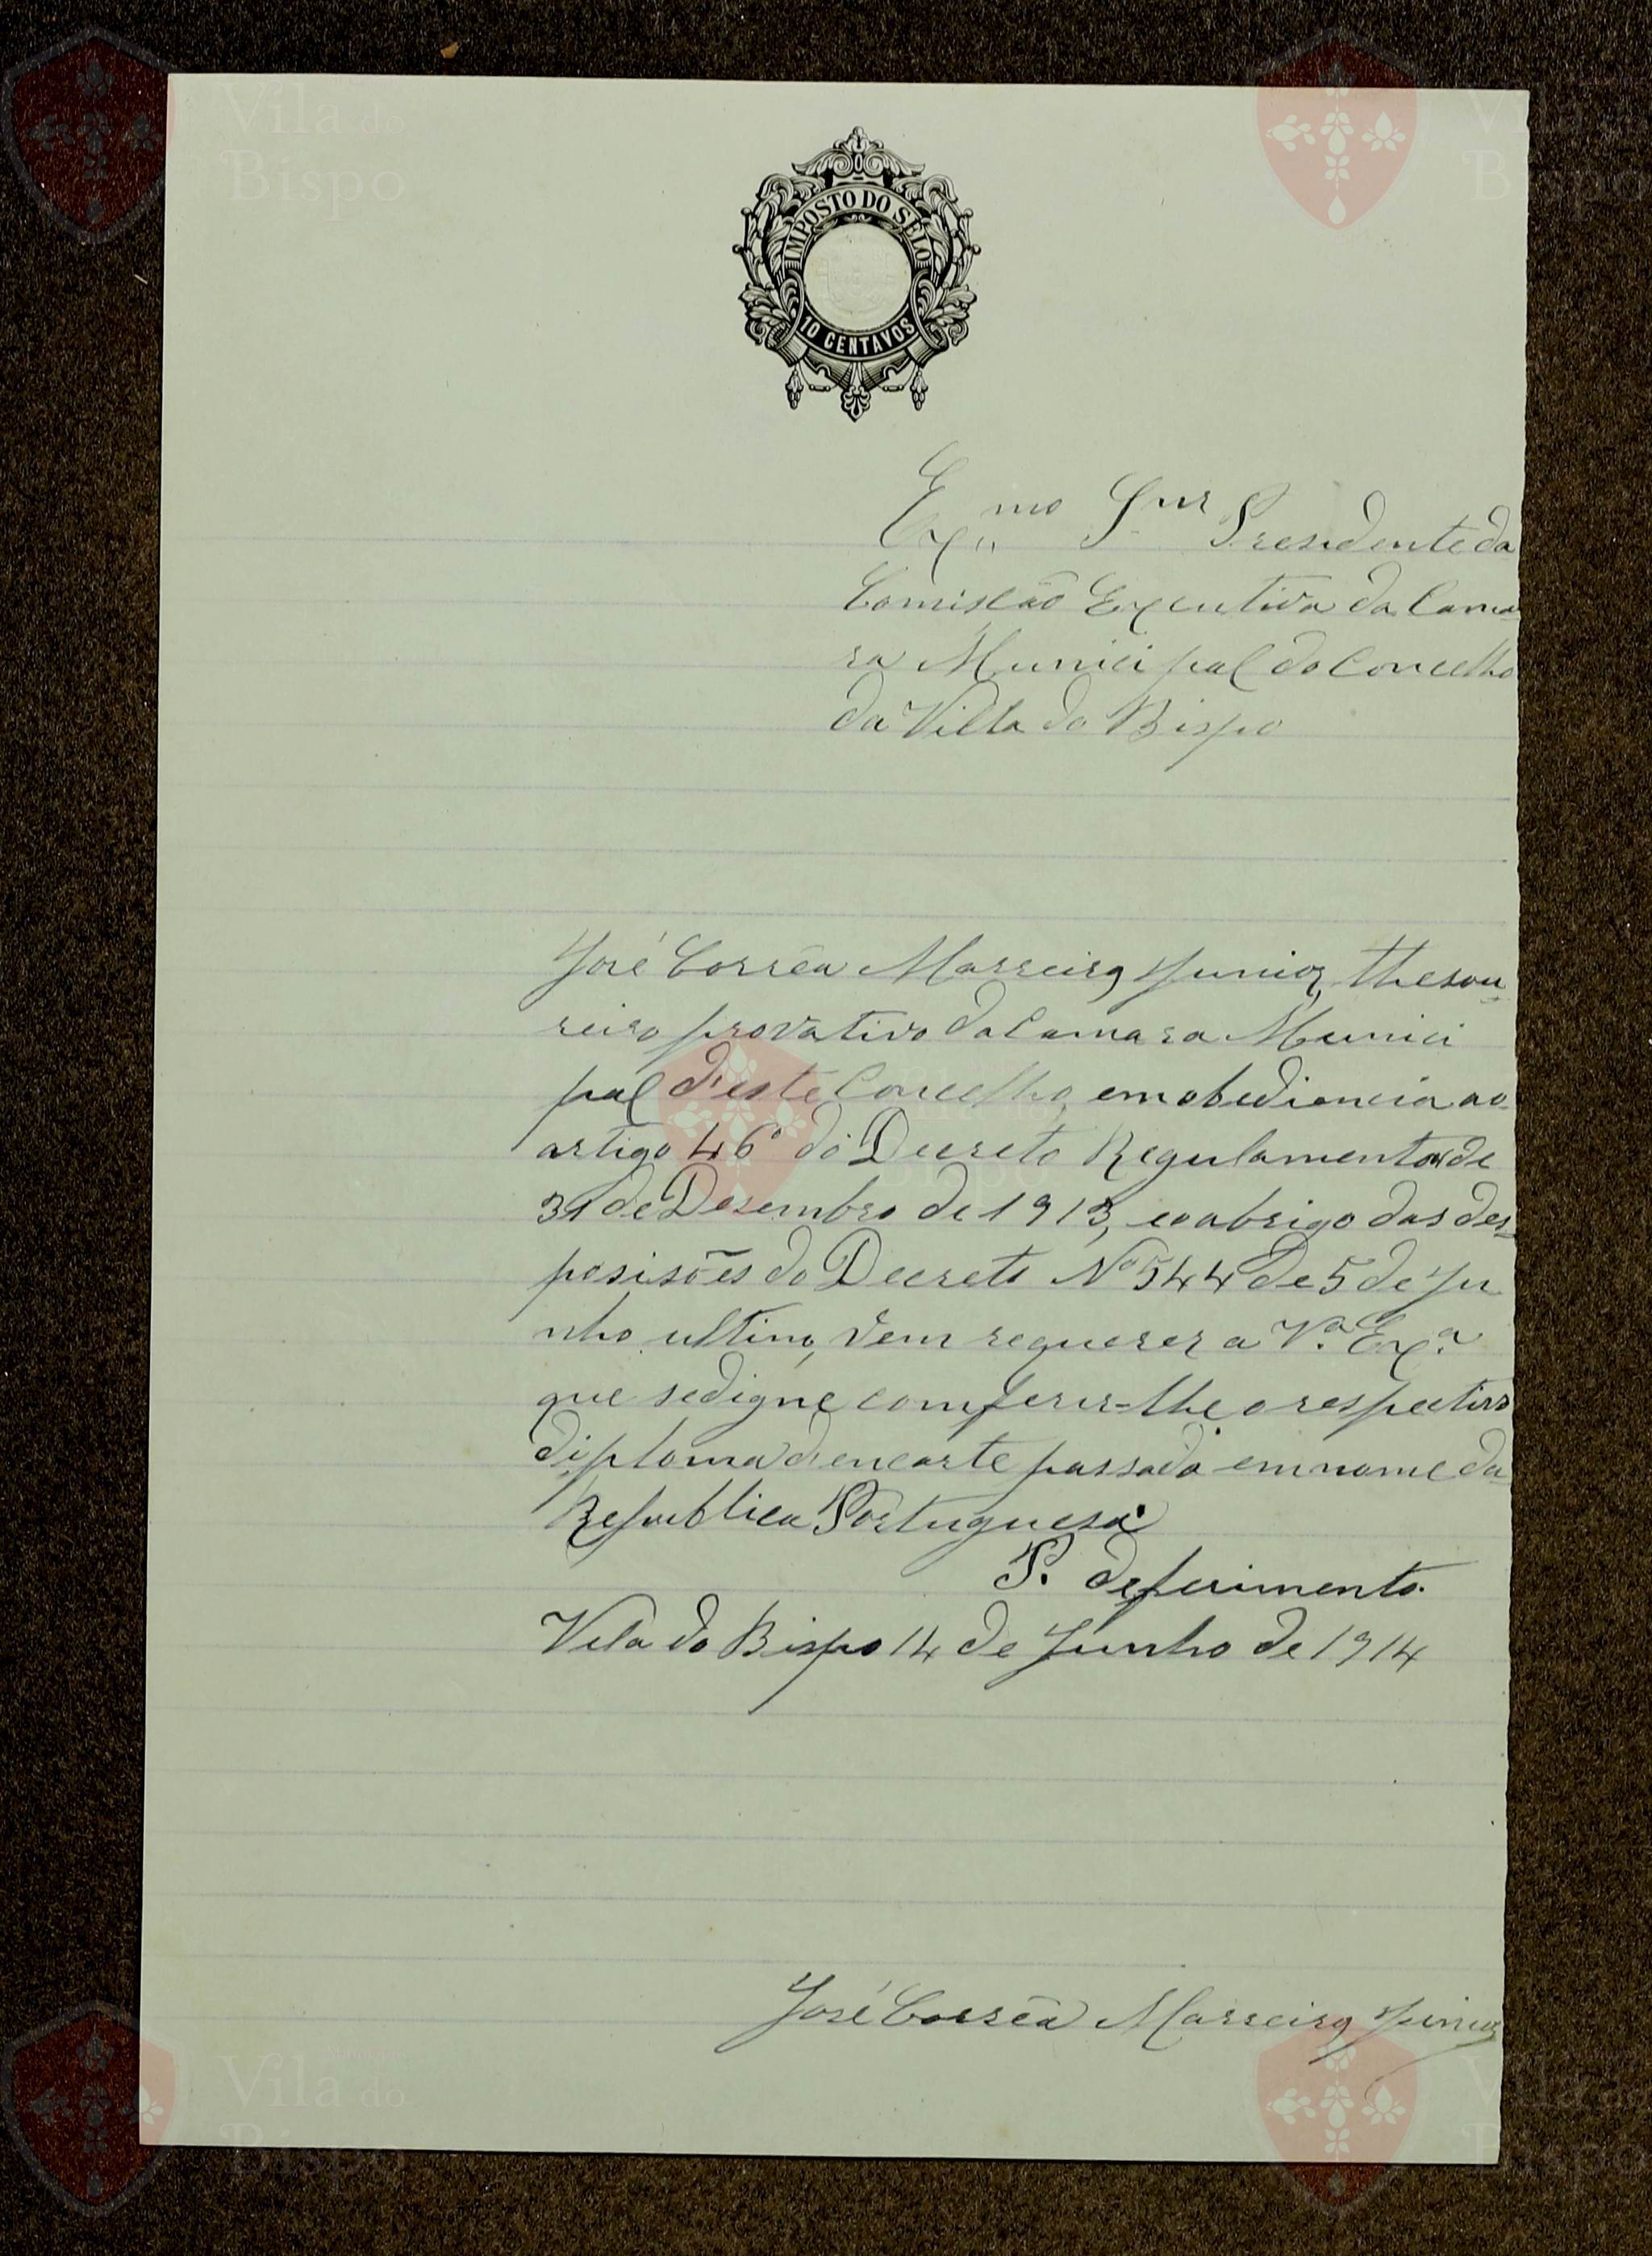 Vila do
Bispo
IMPOSTO DO SELO
10 CENTAVOS
Ex.mo Snr Presidente da
Comissão Executiva da Cama-
ra Municipal do Concelho
da Villa do Bispo
José Corrêa Marreiros Junior, thesou-
reiro provativo da Camara Munici
pal d'este Concelho, em obediencia ao
artigo 46º do Decreto Regulamentar de
31 de Desembro de 1913, e o abrigo das des-
posisões do Decreto Nº 544 de 5 de Ju
nho ultimo, vem requerer a V.ª Ex.ª
que se digne comferir-lhe o respectivo
diploma d'encarte passado em nome da
Republica Portuguesa
P. deferimento.
Vila do Bispo 14 de Junho de 1914
José Corrêa Marreiros Junior
Vila do
Bispo